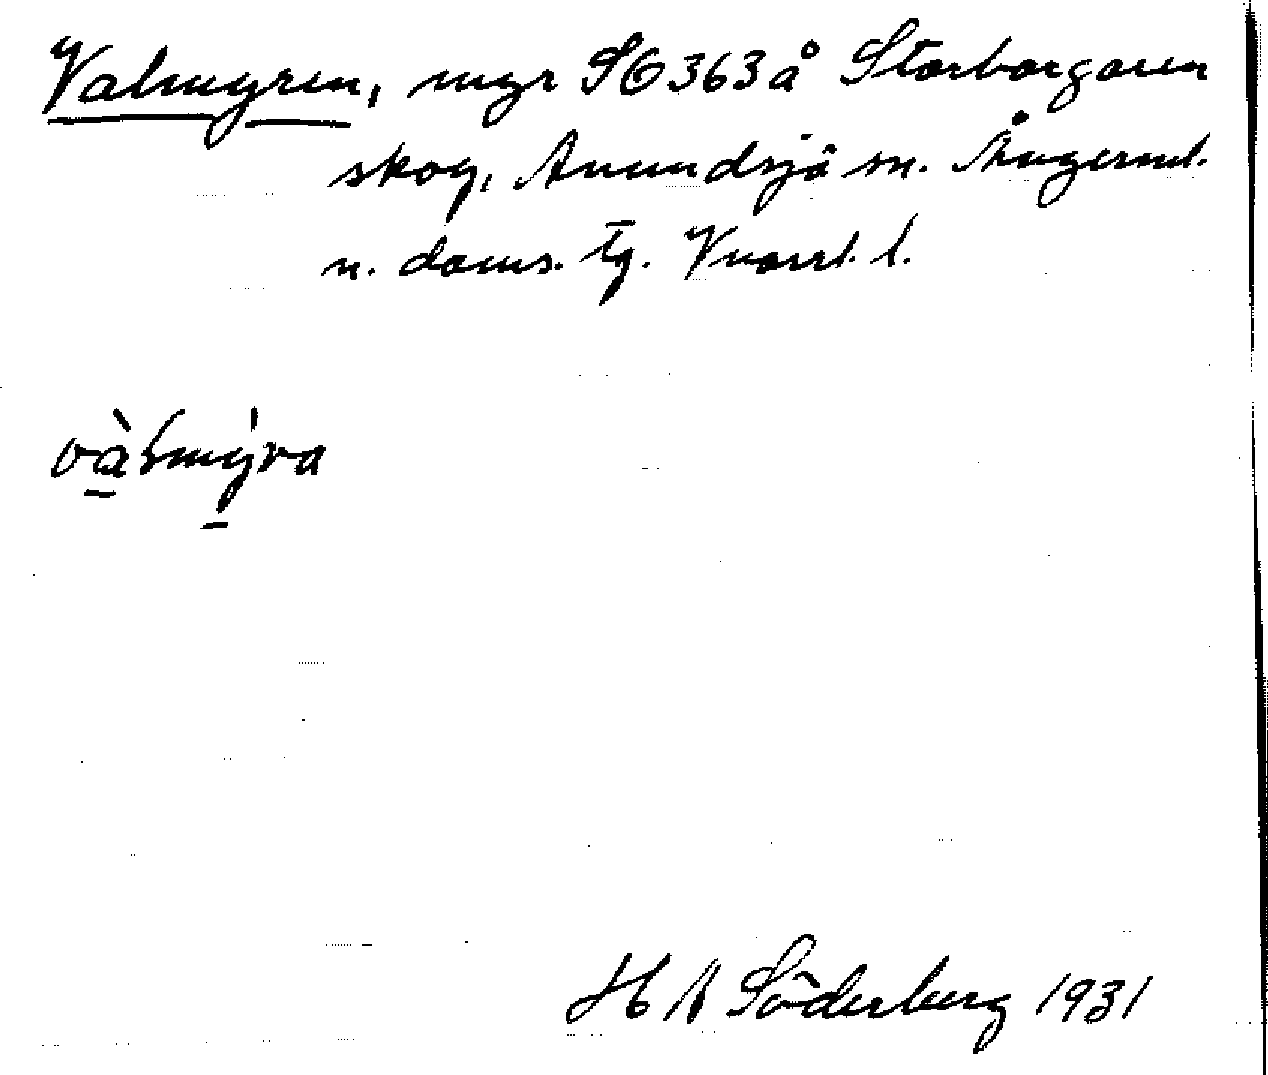 Valmyren, myr SO 363 å Storborgaren
skog, Anundsjö sn. Ångerml.
n. doms. tg. l.
vàlmýra
H A Söderberg 1931